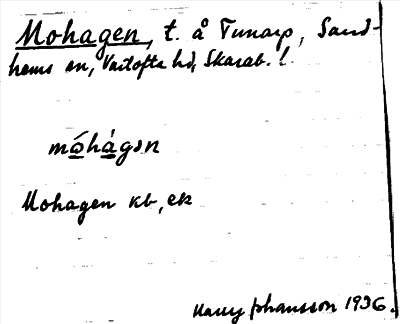 Mohagen, t. å Tunarp, Sand-
hems sn, Vartofta hd, Skarab. l.
mω̄́hàgən
Mohagen kb, ek
Harry Johansson 1936.